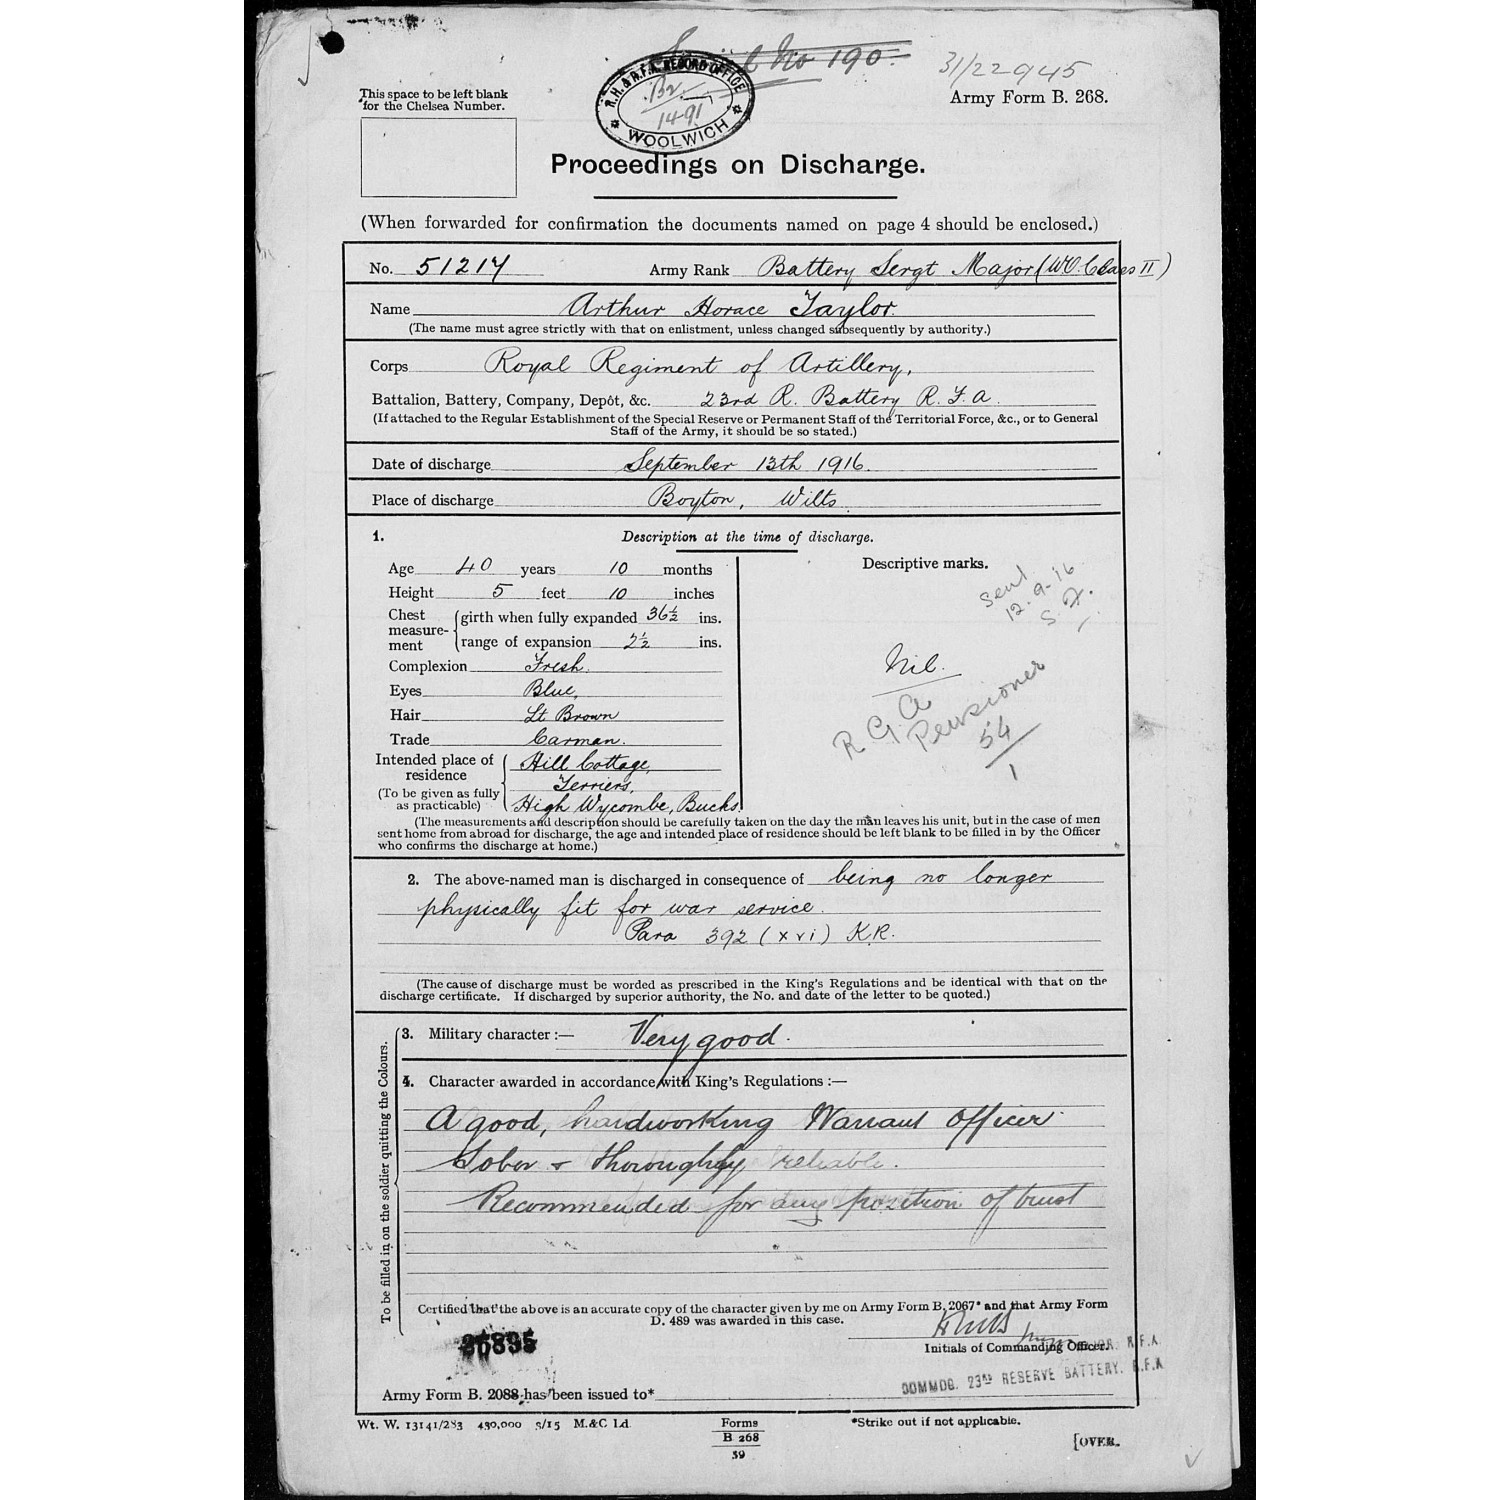 No 190.
31/22945
R.H. & R.F.A. RECORD OFFICE
14-91
WOOLWICH
This space to be left blank
for the Chelsea Number.
Army Form B. 268.
Proceedings on Discharge.
(When forwarded for confirmation the documents named on page 4 should be enclosed.)
No. 51217 Army Rank Battery Sergt Major (W.O. Class II)
Name Arthur Horace Taylor.
(The name must agree strictly with that on enlistment, unless changed subsequently by authority.)
Corps Royal Regiment of Artillery,
Battalion, Battery, Company, Depôt, &c. 23rd R. Battery R.F.A.
(If attached to the Regular Establishment of the Special Reserve or Permanent Staff of the Territorial Force, &c., or to General
Staff of the Army, it should be so stated.)
Date of discharge September 13th 1916.
Place of discharge Boyton, Wilts.
1. Description at the time of discharge.
Age 40 years 10 months
Height 5 feet 10 inches
Chest measurement
girth when fully expanded 36½ ins.
range of expansion 2½ ins.
Complexion Fresh.
Eyes Blue.
Hair Lt Brown
Trade Carman.
Intended place of residence
(To be given as fully as practicable)
Hill Cottage,
Terriers,
High Wycombe, Bucks.
Descriptive marks.
sent
12.9.16
Nil.
R.G.A
Pensioner
54
1
(The measurements and description should be carefully taken on the day the man leaves his unit, but in the case of men
sent home from abroad for discharge, the age and intended place of residence should be left blank to be filled in by the Officer
who confirms the discharge at home.)
2. The above-named man is discharged in consequence of being no longer
physically fit for war service.
Para 392 (xvi) K.R.
(The cause of discharge must be worded as prescribed in the King's Regulations and be identical with that on the
discharge certificate. If discharged by superior authority, the No. and date of the letter to be quoted.)
To be filled in on the soldier quitting the Colours.
3. Military character :— Very good.
4. Character awarded in accordance with King's Regulations :—
A good, hardworking Warrant Officer
Sober & thoroughly reliable.
Recommended for any position of trust
Certified that the above is an accurate copy of the character given by me on Army Form B. 2067* and that Army Form
D. 489 was awarded in this case.
Initials of Commanding Officer.
R.F.A.
COMMDG. 23RD RESERVE BATTERY. R.F.A
Army Form B. 2088 has been issued to*
Wt. W. 13141/283 430,000 3/15 M.&C Ld.
Forms
B 268
39
*Strike out if not applicable.
[OVER.